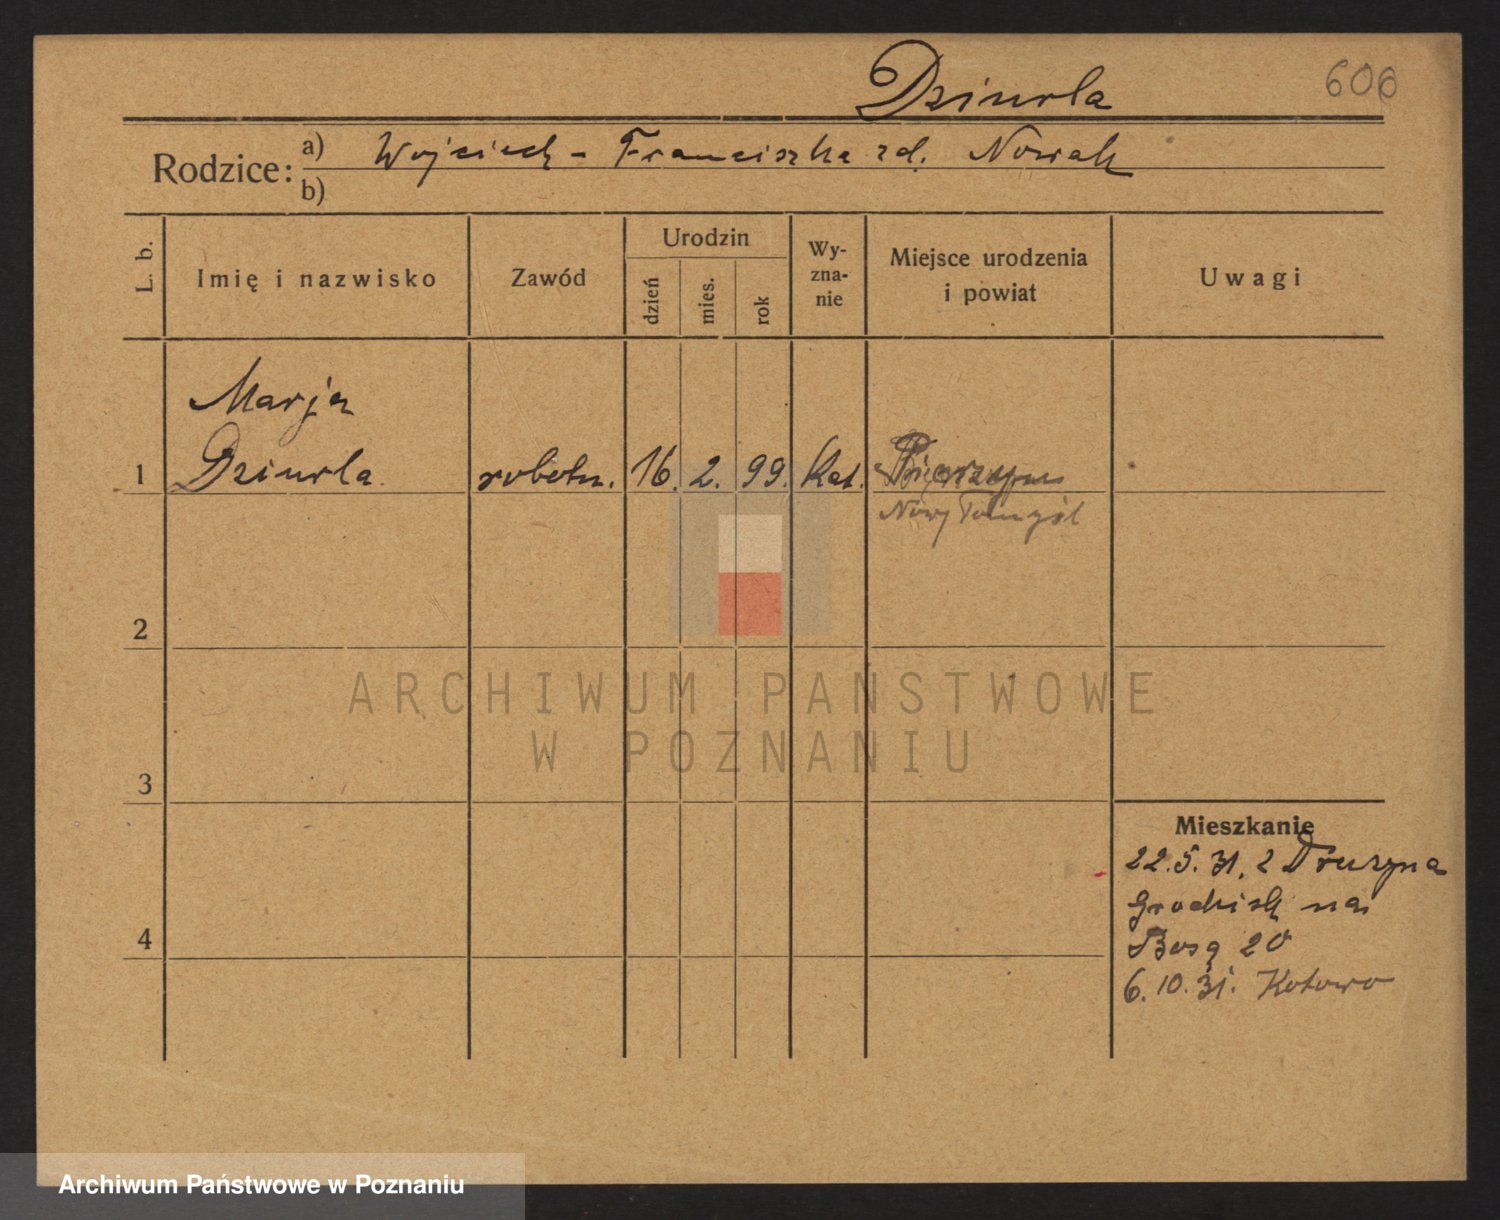 Dziurla
606
Rodzice: a) Wojciech - Franciszka zd. Nowak
b)
L. b.
Imię i nazwisko
Zawód
Urodzin
dzień
mies.
rok
Wy-
zna-
nie
Miejsce urodzenia
i powiat
Uwagi
Marja
1 Dziurla robotn. 16. 2. 99. Kat.
Nowy Tomyśl
2
3
4
Mieszkanie
22.5.31. z Druzyna
Grodzisk na
Bosą 20
6.10.31. Kotowo
ARCHIWUM PAŃSTWOWE
W POZNANIU
Archiwum Państwowe w Poznaniu